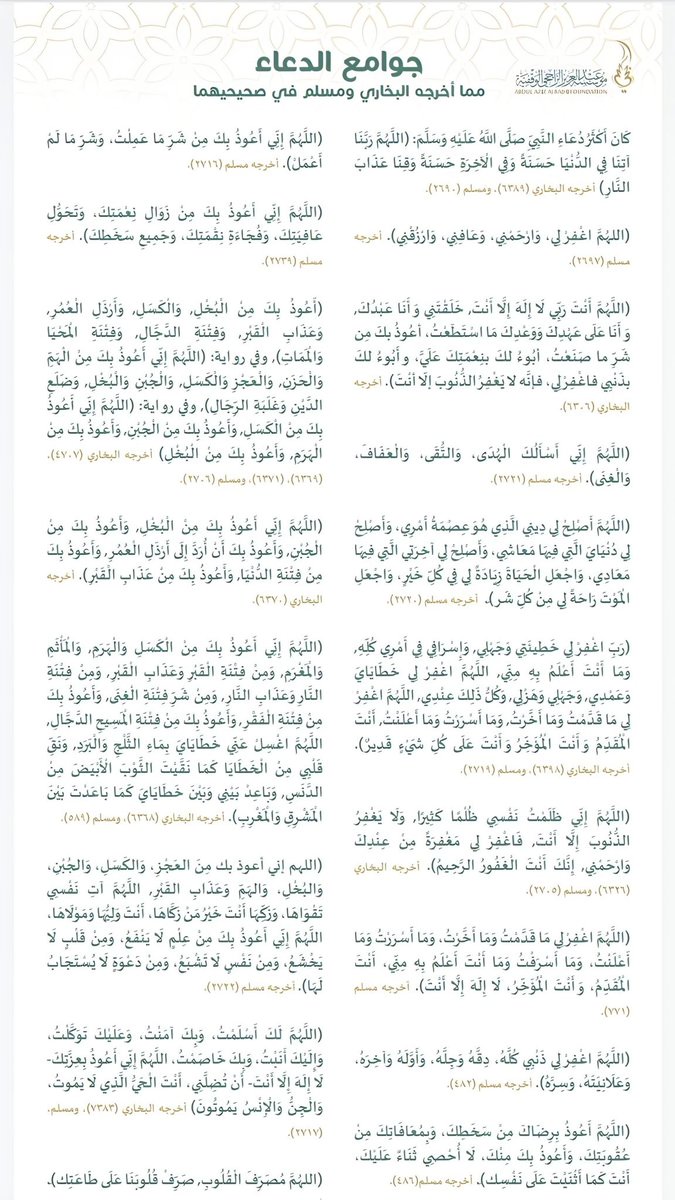 جوامع الدعاء
مما أخرجه البخاري ومسلم في صحيحيهما
مؤسسة عبدالعزيز الراجحي الوقفية
كَانَ أَكْثَرُ دُعَاءِ النَّبِيِّ صَلَّى اللَّهُ عَلَيْهِ وَسَلَّمَ: (اللَّهُمَّ رَبَّنَا
آتِنَا فِي الدُّنْيَا حَسَنَةً وَفِي الْآخِرَةِ حَسَنَةً وَقِنَا عَذَابَ
النَّارِ) أخرجه البخاري (٦٣٨٩)، ومسلم (٢٦٩٠).
(اللهُمَّ اغْفِرْ لِي، وَارْحَمْنِي، وَعَافِنِي، وَارْزُقْنِي). أخرجه
مسلم (٢٦٩٧).
(اللَّهُمَّ أَنْتَ رَبِّي لَا إِلَهَ إِلَّا أَنْتَ, خَلَقْتَنِي وَأَنَا عَبْدُكَ,
وَأَنَا عَلَى عَهْدِكَ وَوَعْدِكَ مَا اسْتَطَعْتُ، أَعُوذُ بكَ مِن
شَرِّ ما صَنَعْتُ، أبُوءُ لكَ بنِعْمَتِكَ عَلَيَّ، و أَبُوءُ لكَ
بذَنْبِي فاغْفِرْ لِي، فإنَّه لا يَغْفِرُ الذُّنُوبَ إلَّا أنْتَ). أخرجه
البخاري (٦٣٠٦).
(اللَّهُمَّ إِنِّي أَسْأَلُكَ الْهُدَى، وَالتُّقَى، وَالْعَفَافَ،
وَالْغِنَى). أخرجه مسلم (٢٧٢١).
(اللَّهُمَّ أَصْلِحْ لِي دِينِي الَّذِي هُوَ عِصْمَةُ أَمْرِي، وَأَصْلِحْ
لِي دُنْيَايَ الَّتِي فِيهَا مَعَاشِي، وَأَصْلِحْ لِي آخِرَتِي الَّتِي فِيهَا
مَعَادِي، وَاجْعَلِ الْحَيَاةَ زِيَادَةً لِي فِي كُلِّ خَيْرٍ، وَاجْعَلِ
الْمَوْتَ رَاحَةً لِي مِنْ كُلِّ شَرٍ). أخرجه مسلم (٢٧٢٠).
(رَبِّ اغْفِرْ لِي خَطِيئَتِي وَجَهْلِي, وَإِسْرَافِي فِي أَمْرِي كُلِّهِ,
وَمَا أَنْتَ أَعْلَمُ بِهِ مِنِّي, اللَّهُمَّ اغْفِرْ لِي خَطَايَايَ
وَعَمْدِي, وَجَهْلِي وَهَزْلِي, وَكُلُّ ذَلِكَ عِنْدِي, اللَّهُمَّ اغْفِرْ
لِي مَا قَدَّمْتُ وَمَا أَخَّرْتُ, وَمَا أَسْرَرْتُ وَمَا أَعْلَنْتُ, أَنْتَ
الْمُقَدِّمُ وَأَنْتَ الْمُؤَخِّرُ وَأَنْتَ عَلَى كُلِّ شَيْءٍ قَدِيرٌ).
أخرجه البخاري (٦٣٩٨)، ومسلم (٢٧١٩).
(اللَّهُمَّ إِنِّي ظَلَمْتُ نَفْسِي ظُلْمًا كَثِيرًا, وَلَا يَغْفِرُ
الذُّنُوبَ إِلَّا أَنْتَ, فَاغْفِرْ لِي مَغْفِرَةً مِنْ عِنْدِكَ
وَارْحَمْنِي, إِنَّكَ أَنْتَ الْغَفُورُ الرَّحِيمُ). أخرجه البخاري
(٦٣٢٦)، ومسلم (٢٧٠٥).
(اللَّهُمَّ اغْفِرْ لِي مَا قَدَّمْتُ وَمَا أَخَّرْتُ، وَمَا أَسْرَرْتُ وَمَا
أَعْلَنْتُ، وَمَا أَسْرَفْتُ وَمَا أَنْتَ أَعْلَمُ بِهِ مِنِّي، أَنْتَ
الْمُقَدِّمُ، وَأَنْتَ الْمُؤَخِّرُ، لَا إِلَهَ إِلَّا أَنْتَ). أخرجه مسلم
(٧٧١).
(اللَّهُمَّ اغْفِرْ لِي ذَنْبِي كُلَّهُ، دِقَّهُ وَجِلَّهُ، وَأَوَّلَهُ وَآخِرَهُ،
وَعَلَانِيَتَهُ، وَسِرَّهُ). أخرجه مسلم (٤٨٢).
(اللَّهُمَّ أَعُوذُ بِرِضَاكَ مِنْ سَخَطِكَ، وَبِمُعَافَاتِكَ مِنْ
عُقُوبَتِكَ، وَأَعُوذُ بِكَ مِنْكَ، لَا أُحْصِي ثَنَاءً عَلَيْكَ،
أَنْتَ كَمَا أَثْنَيْتَ عَلَى نَفْسِك). أخرجه مسلم(٤٨٦).
(اللَّهُمَّ إِنِّي أَعُوذُ بِكَ مِنْ شَرِّ مَا عَمِلْتُ، وَشَرِّ مَا لَمْ
أَعْمَلْ). أخرجه مسلم (٢٧١٦).
(اللَّهُمَّ إِنِّي أَعُوذُ بِكَ مِنْ زَوَالِ نِعْمَتِكَ، وَتَحَوُّلِ
عَافِيَتِكَ، وَفُجَاءَةِ نِقْمَتِكَ، وَجَمِيعِ سَخَطِكَ). أخرجه
مسلم (٢٧٣٩).
(أَعُوذُ بِكَ مِنْ الْبُخْلِ, وَالْكَسَلِ, وَأَرْذَلِ الْعُمُرِ,
وَعَذَابِ الْقَبْرِ, وَفِتْنَةِ الدَّجَّالِ, وَفِتْنَةِ الْمَحْيَا
وَالْمَمَاتِ), وفي رواية: (اللَّهُمَّ إِنِّي أَعُوذُ بِكَ مِنْ الْهَمِّ
وَالْحَزَنِ, وَالْعَجْزِ وَالْكَسَلِ, وَالْجُبْنِ وَالْبُخْلِ, وَضَلَعِ
الدَّيْنِ وَغَلَبَةِ الرِّجَالِ), وفي رواية: (اللَّهُمَّ إِنِّي أَعُوذُ
بِكَ مِنْ الْكَسَلِ, وَأَعُوذُ بِكَ مِنْ الْجُبْنِ, وَأَعُوذُ بِكَ مِنْ
الْهَرَمِ, وَأَعُوذُ بِكَ مِنْ الْبُخْلِ) أخرجه البخاري (٤٧٠٧)،
(٦٣٦٩)، (٦٣٧١)، ومسلم (٢٧٠٦).
(اللَّهُمَّ إِنِّي أَعُوذُ بِكَ مِنْ الْبُخْلِ, وَأَعُوذُ بِكَ مِنْ
الْجُبْنِ, وَأَعُوذُ بِكَ أَنْ أُرَدَّ إِلَى أَرْذَلِ الْعُمُرِ, وَأَعُوذُ بِكَ
مِنْ فِتْنَةِ الدُّنْيَا, وَأَعُوذُ بِكَ مِنْ عَذَابِ الْقَبْرِ). أخرجه
البخاري (٦٣٧٠).
(اللَّهُمَّ إِنِّي أَعُوذُ بِكَ مِنْ الْكَسَلِ وَالْهَرَمِ, وَالْمَأْثَمِ
وَالْمَغْرَمِ, وَمِنْ فِتْنَةِ الْقَبْرِ وَعَذَابِ الْقَبْرِ, وَمِنْ فِتْنَةِ
النَّارِ وَعَذَابِ النَّارِ, وَمِنْ شَرِّ فِتْنَةِ الْغِنَى, وَأَعُوذُ بِكَ
مِنْ فِتْنَةِ الْفَقْرِ, وَأَعُوذُ بِكَ مِنْ فِتْنَةِ الْمَسِيحِ الدَّجَّالِ,
اللَّهُمَّ اغْسِلْ عَنِّي خَطَايَايَ بِمَاءِ الثَّلْجِ وَالْبَرَدِ, وَنَقِّ
قَلْبِي مِنْ الْخَطَايَا كَمَا نَقَّيْتَ الثَّوْبَ الْأَبْيَضَ مِنْ
الدَّنَسِ, وَبَاعِدْ بَيْنِي وَبَيْنَ خَطَايَايَ كَمَا بَاعَدْتَ بَيْنَ
الْمَشْرِقِ وَالْمَغْرِبِ). أخرجه البخاري (٦٣٦٨)، ومسلم (٥٨٩).
(اللهم إني أعوذ بك مِنَ العَجْزِ، وَالكَسَلِ، وَالجُبْنِ،
وَالبُخْلِ، وَالهَمِّ وَعَذَابِ القَبْرِ, اللَّهُمَّ آتِ نَفْسِي
تَقْوَاهَا، وَزَكِّهَا أَنْتَ خَيْرُ مَنْ زَكَّاهَا، أَنْتَ وَلِيُّهَا وَمَوْلَاهَا،
اللَّهُمَّ إِنِّي أَعُوذُ بِكَ مِنْ عِلْمٍ لَا يَنْفَعُ، وَمِنْ قَلْبٍ لَا
يَخْشَعُ، وَمِنْ نَفْسٍ لَا تَشْبَعُ، وَمِنْ دَعْوَةٍ لَا يُسْتَجَابُ
لَهَا). أخرجه مسلم (٢٧٢٢).
(اللَّهُمَّ لَكَ أَسْلَمْتُ، وَبِكَ آمَنْتُ، وَعَلَيْكَ تَوَكَّلْتُ،
وَإِلَيْكَ أَنَبْتُ، وَبِكَ خَاصَمْتُ، اللَّهُمَّ إِنِّي أَعُوذُ بِعِزَّتِكَ-
لَا إِلَهَ إِلَّا أَنْتَ- أَنْ تُضِلَّنِي، أَنْتَ الْحَيُّ الَّذِي لَا يَمُوتُ،
وَالْجِنُّ وَالْإِنْسُ يَمُوتُونَ) أخرجه البخاري (٧٣٨٣)، ومسلم.
(٢٧١٧)
(اللهُمَّ مُصَرِّفَ الْقُلُوبِ, صَرِّفْ قُلُوبَنَا عَلَى طَاعَتِكِ).